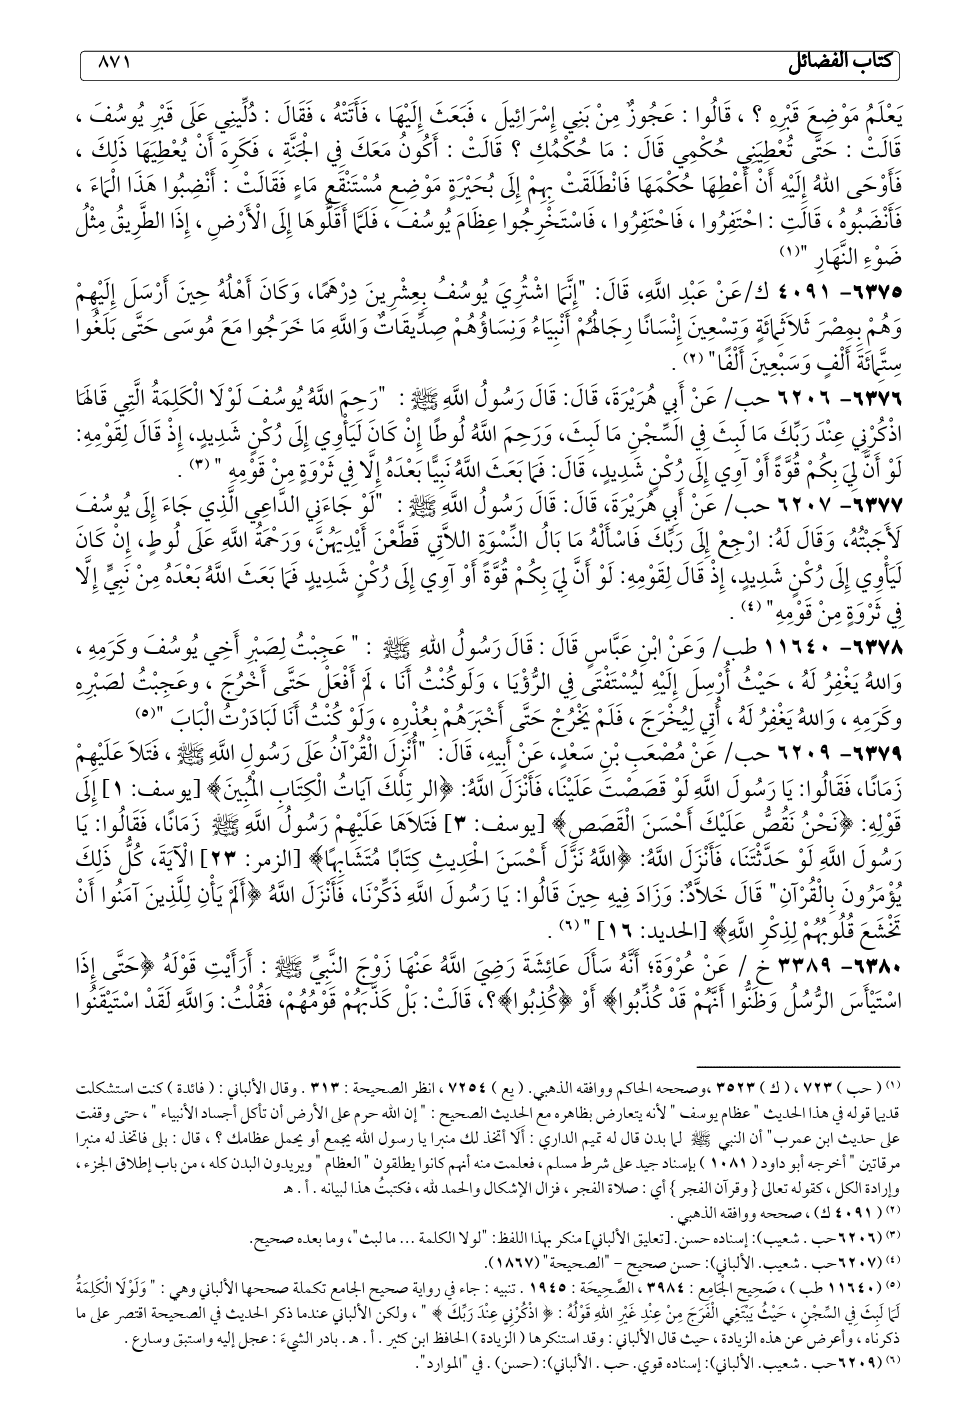 كتاب الفضائل ٨٧١
يَعْلَمُ مَوْضِعَ قَبْرِهِ ؟ ، قَالُوا : عَجُوزٌ مِنْ بَنِي إِسْرَائِيلَ ، فَبَعَثَ إِلَيْهَا ، فَأَتَتْهُ ، فَقَالَ : دُلِّينِي عَلَى قَبْرِ يُوسُفَ ،
قَالَتْ : حَتَّى تُعْطِيَنِي حُكْمِي قَالَ : مَا حُكْمُكِ ؟ قَالَتْ : أَكُونُ مَعَكَ فِي الْجَنَّةِ ، فَكَرِهَ أَنْ يُعْطِيَهَا ذَلِكَ ،
فَأَوْحَى اللهُ إِلَيْهِ أَنْ أَعْطِهَا حُكْمَهَا فَانْطَلَقَتْ بِهِمْ إِلَى بُحَيْرَةٍ مَوْضِعِ مُسْتَنْقَعِ مَاءٍ فَقَالَتْ : أَنْضِبُوا هَذَا الْمَاءَ ،
فَأَنْضَبُوهُ ، قَالَتِ : احْتَفِرُوا ، فَاحْتَفِرُوا ، فَاسْتَخْرِجُوا عِظَامَ يُوسُفَ ، فَلَمَّا أَقَلُّوهَا إِلَى الْأَرْضِ ، إِذَا الطَّرِيقُ مِثْلُ
ضَوْءِ النَّهَارِ "(١)
٦٣٧٥- ٤٠٩١ ك/عَنْ عَبْدِ اللَّهِ، قَالَ: "إِنَّمَا اشْتُرِيَ يُوسُفُ بِعِشْرِينَ دِرْهَمًا، وَكَانَ أَهْلُهُ حِينَ أَرْسَلَ إِلَيْهِمْ
وَهُمْ بِمِصْرَ ثَلَاثَمِائَةٍ وَتِسْعِينَ إِنْسَانًا رِجَالُهُمْ أَنْبِيَاءُ وَنِسَاؤُهُمْ صِدِّيقَاتٌ وَاللَّهِ مَا خَرَجُوا مَعَ مُوسَى حَتَّى بَلَغُوا
سِتَّمِائَةَ أَلْفٍ وَسَبْعِينَ أَلْفًا" (٢) .
٦٣٧٦- ٦٢٠٦ حب/ عَنْ أَبِي هُرَيْرَةَ، قَالَ: قَالَ رَسُولُ اللَّهِ ﷺ : "رَحِمَ اللَّهُ يُوسُفَ لَوْلَا الْكَلِمَةُ الَّتِي قَالَهَا
اذْكُرْنِي عِنْدَ رَبِّكَ مَا لَبِثَ فِي السِّجْنِ مَا لَبِثَ، وَرَحِمَ اللَّهُ لُوطًا إِنْ كَانَ لَيَأْوِي إِلَى رُكْنٍ شَدِيدٍ، إِذْ قَالَ لِقَوْمِهِ:
لَوْ أَنَّ لِيَ بِكُمْ قُوَّةً أَوْ آوِي إِلَى رُكْنٍ شَدِيدٍ، قَالَ: فَمَا بَعَثَ اللَّهُ نَبِيًّا بَعْدَهُ إِلَّا فِي ثَرْوَةٍ مِنْ قَوْمِهِ " (٣) .
٦٣٧٧- ٦٢٠٧ حب/ عَنْ أَبِي هُرَيْرَةَ، قَالَ: قَالَ رَسُولُ اللَّهِ ﷺ : "لَوْ جَاءَنِي الدَّاعِي الَّذِي جَاءَ إِلَى يُوسُفَ
لَأَجَبْتُهُ، وَقَالَ لَهُ: ارْجِعْ إِلَى رَبِّكَ فَاسْأَلْهُ مَا بَالُ النِّسْوَةِ اللاَّتِي قَطَّعْنَ أَيْدِيَهُنَّ، وَرَحْمَةُ اللَّهِ عَلَى لُوطٍ، إِنْ كَانَ
لَيَأْوِي إِلَى رُكْنٍ شَدِيدٍ، إِذْ قَالَ لِقَوْمِهِ: لَوْ أَنَّ لِيَ بِكُمْ قُوَّةً أَوْ آوِي إِلَى رُكْنٍ شَدِيدٍ فَمَا بَعَثَ اللَّهُ بَعْدَهُ مِنْ نَبِيٍّ إِلَّا
فِي ثَرْوَةٍ مِنْ قَوْمِهِ" (٤) .
٦٣٧٨- ١١٦٤٠ طب/ وَعَنْ ابْنِ عَبَّاسٍ قَالَ : قَالَ رَسُولُ اللهِ ﷺ : " عَجِبْتُ لِصَبْرِ أَخِي يُوسُفَ وكَرَمِهِ ،
وَاللهُ يَغْفِرُ لَهُ ، حَيْثُ أُرْسِلَ إِلَيْهِ لِيُسْتَفْتَى فِي الرُّؤْيَا ، وَلَوكُنْتُ أَنَا ، لَمْ أَفْعَلْ حَتَّى أَخْرُجَ ، وعَجِبْتُ لصَبْرِهِ
وكَرَمِهِ ، وَاللهُ يَغْفِرُ لَهُ ، أُتِي لِيُخْرَجَ ، فَلَمْ يَخْرُجْ حَتَّى أَخْبَرَهُمْ بِعُذْرِهِ ، وَلَوْ كُنْتُ أَنَا لَبَادَرْتُ الْبَابَ "(٥)
٦٣٧٩- ٦٢٠٩ حب/ عَنْ مُصْعَبِ بْنِ سَعْدٍ، عَنْ أَبِيهِ، قَالَ: "أُنْزِلَ الْقُرْآنُ عَلَى رَسُولِ اللَّهِ ﷺ ، فَتَلاَ عَلَيْهِمْ
زَمَانًا، فَقَالُوا: يَا رَسُولَ اللَّهِ لَوْ قَصَصْتَ عَلَيْنَا، فَأَنْزَلَ اللَّهُ: ﴿الر تِلْكَ آيَاتُ الْكِتَابِ الْمُبِينَ﴾ [يوسف: ١] إِلَى
قَوْلِهِ: ﴿نَحْنُ نَقُصُّ عَلَيْكَ أَحْسَنَ الْقَصَصِ﴾ [يوسف: ٣] فَتَلاَهَا عَلَيْهِمْ رَسُولُ اللَّهِ ﷺ زَمَانًا، فَقَالُوا: يَا
رَسُولَ اللَّهِ لَوْ حَدَّثْتَنَا، فَأَنْزَلَ اللَّهُ: ﴿اللَّهُ نَزَّلَ أَحْسَنَ الْحَدِيثِ كِتَابًا مُتَشَابِهًا﴾ [الزمر: ٢٣] الْآيَةَ، كُلُّ ذَلِكَ
يُؤْمَرُونَ بِالْقُرْآنِ" قَالَ خَلاَّدٌ: وَزَادَ فِيهِ حِينَ قَالُوا: يَا رَسُولَ اللَّهِ ذَكِّرْنَا، فَأَنْزَلَ اللَّهُ ﴿أَلَمْ يَأْنِ لِلَّذِينَ آمَنُوا أَنْ
تَخْشَعَ قُلُوبُهُمْ لِذِكْرِ اللَّهِ﴾ [الحديد: ١٦] " (٦) .
٦٣٨٠- ٣٣٨٩ خ / عَنْ عُرْوَةَ؛ أَنَّهُ سَأَلَ عَائِشَةَ رَضِيَ اللَّهُ عَنْهَا زَوْجَ النَّبِيِّ ﷺ : أَرَأَيْتِ قَوْلَهُ ﴿حَتَّى إِذَا
اسْتَيْأَسَ الرُّسُلُ وَظَنُّوا أَنَّهُمْ قَدْ كُذِّبُوا﴾ أَوْ ﴿كُذِبُوا﴾؟، قَالَتْ: بَلْ كَذَّبَهُمْ قَوْمُهُمْ، فَقُلْتُ: وَاللَّهِ لَقَدْ اسْتَيْقَنُوا
(١) ( حب ) ٧٢٣ ، ( ك ) ٣٥٢٣ ،وصححه الحاكم ووافقه الذهبي. ( يع ) ٧٢٥٤ ، انظر الصحيحة : ٣١٣ . وقال الألباني : ( فائدة ) كنت استشكلت
قديما قوله في هذا الحديث " عظام يوسف " لأنه يتعارض بظاهره مع الحديث الصحيح : " إن الله حرم على الأرض أن تأكل أجساد الأنبياء " ، حتى وقفت
على حديث ابن عمرب" أن النبي ﷺ لما بدن قال له تميم الداري : أَلَا أتخذ لك منبرا يا رسول الله يجمع أو يحمل عظامك ؟ ، قال : بلى فاتخذ له منبرا
مرقاتين " أخرجه أبو داود ( ١٠٨١ ) بإسناد جيد على شرط مسلم ، فعلمت منه أنهم كانوا يطلقون " العظام " ويريدون البدن كله ، من باب إطلاق الجزء ،
وإرادة الكل ، كقوله تعالى { وقرآن الفجر } أي : صلاة الفجر ، فزال الإشكال والحمد لله ، فكتبتُ هذا لبيانه . أ . هـ
(٢) ( ٤٠٩١ ك) ، صححه ووافقه الذهبي .
(٣) (٦٢٠٦حب . شعيب): إسناده حسن. [تعليق الألباني] منكر بهذا اللفظ: "لولا الكلمة ... ما لبث"، وما بعده صحيح.
(٤) (٦٢٠٧حب . شعيب. الألباني): حسن صحيح - "الصحيحة" (١٨٦٧).
(٥) ( ١١٦٤٠ طب ) ، صَحِيح الْجَامِع : ٣٩٨٤ ، الصَّحِيحَة : ١٩٤٥ . تنبيه : جاء في رواية صحيح الجامع تكملة صححها الألباني وهي : " وَلَوْلَا الْكَلِمَةُ
لَمَا لَبِثَ فِي السِّجْنِ ، حَيْثُ يَبْتَغِي الْفَرَجَ مِنْ عِنْدِ غَيْرِ اللهِ قَوْلُهُ : ﴿ اذْكُرْنِي عِنْدَ رَبِّكَ ﴾ " ، ولكن الألباني عندما ذكر الحديث في الصحيحة اقتصر على ما
ذكرناه ، وأعرض عن هذه الزيادة ، حيث قال الألباني : وقد استنكرها ( الزيادة ) الحافظ ابن كثير . أ . هـ . بادر الشيءَ : عجل إليه واستبق وسارع .
(٦) (٦٢٠٩حب . شعيب. الألباني): إسناده قوي. حب . الألباني): (حسن) . في "الموارد".